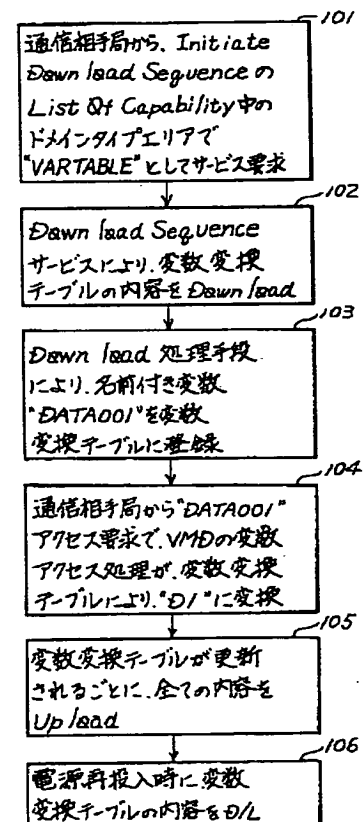 101
通信相手局から、Initiate
Down load Sequence の
List Of Capability中の
ドメインタイプエリアで
"VARTABLE"としてサービス要求
102
Down load Sequence
サービスにより、変数変換
テーブルの内容をDown load
103
Down load 処理手段
により、名前付き変数
"DATA001"を変数
変換テーブルに登録
104
通信相手局から"DATA001"
アクセス要求で、VMDの変数
アクセス処理が、変数変換
テーブルにより、"D1"に変換
105
変数変換テーブルが更新
されるごとに、全ての内容を
Up load
106
電源再投入時に変数
変換テーブルの内容をD/L